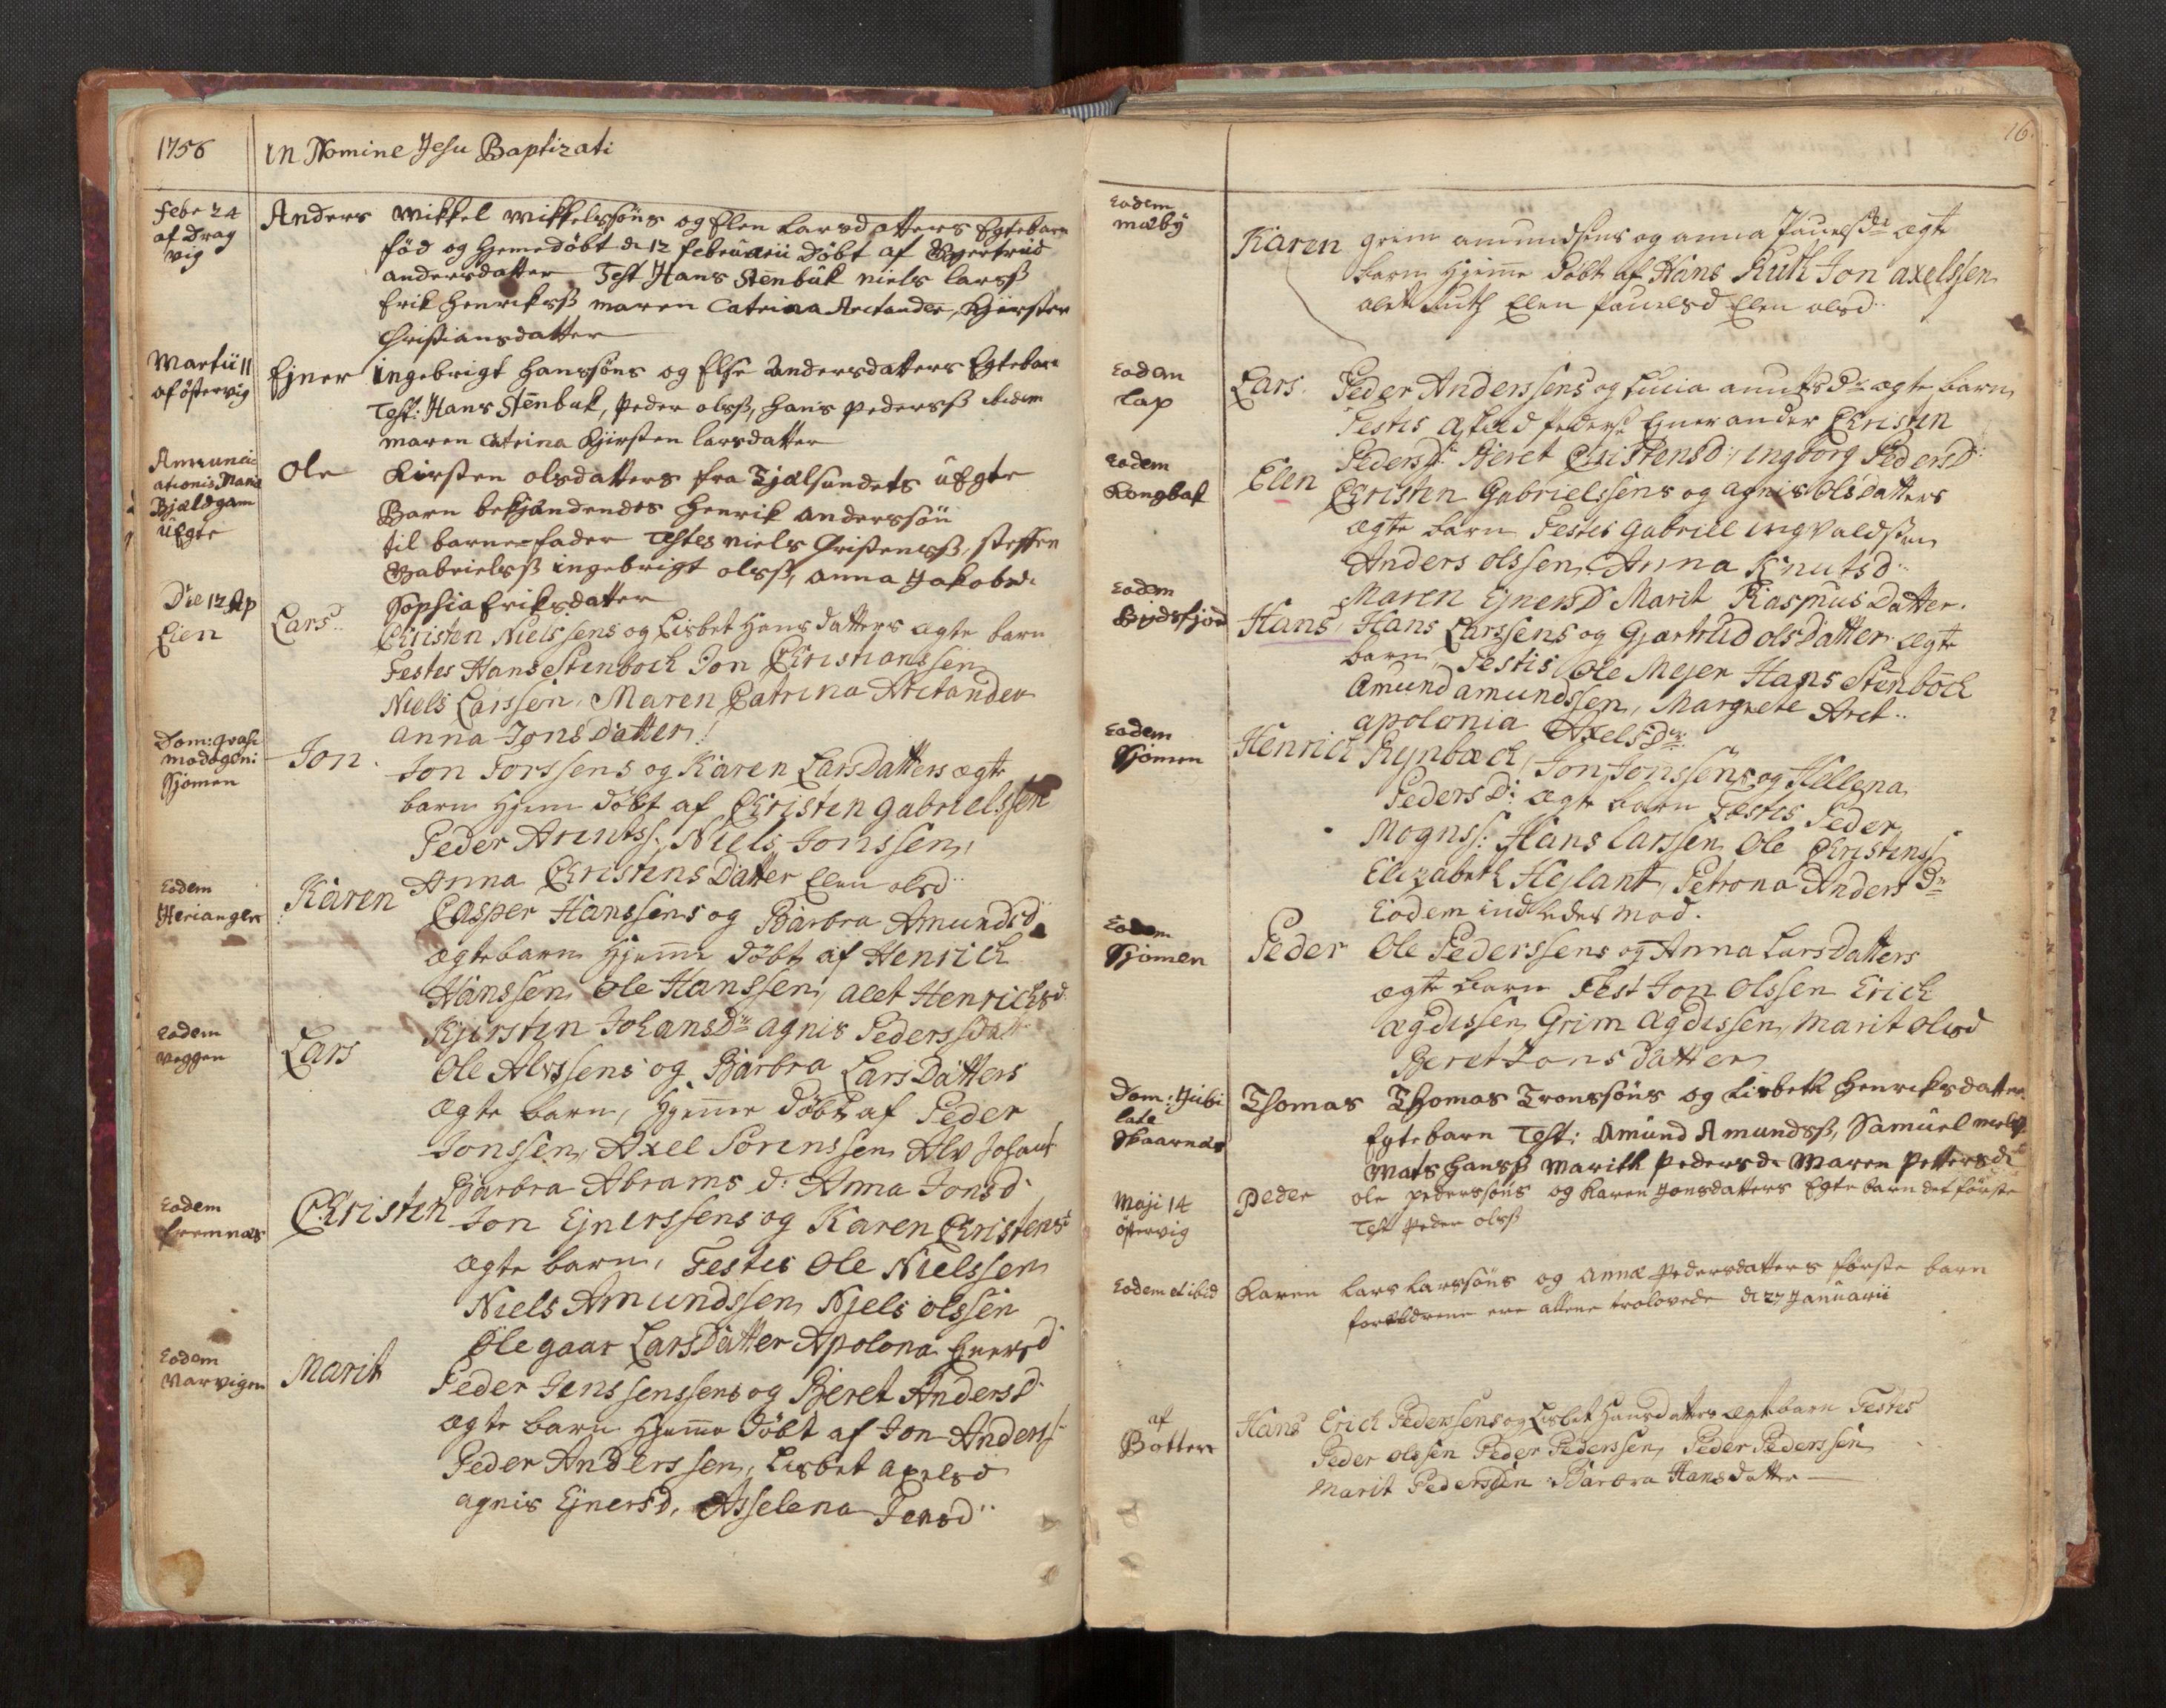 1756
In Nomine Jesu Baptizati
Febr 24
af Drag
vig
Anders Mikkel Mikkelssöns og Elen Larsdatters Egtebarn
föd og hjemedöbt d 12 Februarii Döbt af Gjertrud
andersdatter Test Hans Stenbuk Niels larsß
Erik Henriksß Maren Catrina Arctander, Kjersten
Christiansdatter
Martii 11
af östervig
Ejner Ingebrigt Hanssöns og Else Andersdatters Egtebarn
Test: Hans Stenbuk, Peder olsß, Hans Pedersß
Maren Catrina Kjirsten larsdatter
Annunci
ationis Maria
Bjeldgam
uEgte
Ole Kirsten olsdatters fra Tjælsundets uEgte
Barn bekjændendes Henrik Anderssön
til barnefader Testes Niels Christensß, Steffen
Gabrielsß Ingebrigt olsß, Anna Jakobsd
Sophia Eriksdatter
Die 12 Ap
Lien
Lars Christen Nielssens og Lisbet Hansdatters ægte barn
Testes Hans Stenboch Jon Christianssen
Niels Larssen, Maren Catrina Arctander
Anna Jonsdatter
Dom: Qvasi
modogeni
Sjomen
Jon Jon Jorssens og Karen Larsdatters ægte
barn Hjem döbt af Christen gabrielssen
Peder Arentss: Niels Jonssen,
Anna Christensdatter Elen olsd
Eodem
Herianger
Karen Casper Hanssens og Barbra Amundsd
ægtebarn Hjemme döbt af Henrich
Hanssen, Ole Hanssen, Alet Henrichsd
Kjersten Johansd agnis Pederssdatt
Eodem
Veggen
Lars Ole Alvssens og Barbra Larsdatters
Ægte barn, Hjemme döbt af Peder
Jonssen, Axel Sörenssen Alv Johans
Barbra Abramsd: Anna Jonsd
Eodem
Fremnæs
Christen Jon Ejnerssens og Karen Christensd
Ægte barn, Testes Ole Nielssen
Niels Amundssen, Njels olssen
Ole gaar Larsdatter Apolona Enersd
Eodem
Marvigen
Marit Peder Jenssenssens og Beret Andersd
ægte barn Hjemme döbt af Jon Anderss
Peder Anderssen, Lisbet Axelsd
agnis Ejnersd, Asselena Jensd
16.
Eodem
Malby
Karen grim amundsens og anna Paulsd ægte
barn Hjemme döbt af Hans Ruth Jon axelssen
Alet Ruth Elen Paulsd Elen olsd
Eodem
Lap
Lars. Peder Anderssens og Lucia anutsd ægte barn
Testis Pederss Ejner ander Christen
Pedersd: Beret Christensd: Ingborg Pedersd:
Eodem
Kongbak
Elen Christen Gabrielssens og agnis Olsdatters
ægte barn Testes Gabriel Ingvaldsen
Anders olssen, Anna Knutsd
Maren Ejnersd Marit Rasmusdatter.
Eodem
Bydsfjord
Hans Hans Larssens og Gjertrud olsdatter ægte
barn, Testis Ole Mejer Hans Stenboch
Amund amundssen, Margrete Arct
apolonia Axelsd
Eodem
Sjomen
Henrich Rynbæch, Jon Jonssens og Hellena
Pedersd: ægte barn Testes Peder
Mognss: Hans Larssen Ole Christenss
Elizabeth Hejlant, Petrona Andersd
Eodem ind mod.
Eodem
Sjomen
Peder Ole Pederssens og Anna Larsdatters
ægte barn Test Jon Olssen Erich
Ægdissen Grim Ægdissen, Marit olsd
Beret Jonsdatter
Dom: Jubi
late
Skaarnes
Thomas Thomas Tronssöns og Lisbeth Henriksdatter
Egtebarn Test: Amund Amundsß, Samuel
Mats Hansß Marith Pedersd Maren Pettersd
Maji 14
östervig
Peder ole Pederssöns og Karen Jonsdatters Egtebarn det förste
Test Peder olsß
Eodem et ibid
Karen Lars Larssöns og Annæ Pedersdatters förste barn
forældrene ere allene trolovede d 27 Januarii
af
Botten
Hans Erich Pederssens og Lisbet Hansdatters ægtebarn Testes
Peder olssen Peder Pederssen, Peder Pederssen
Marit Pedersden Barbra Hansdatter